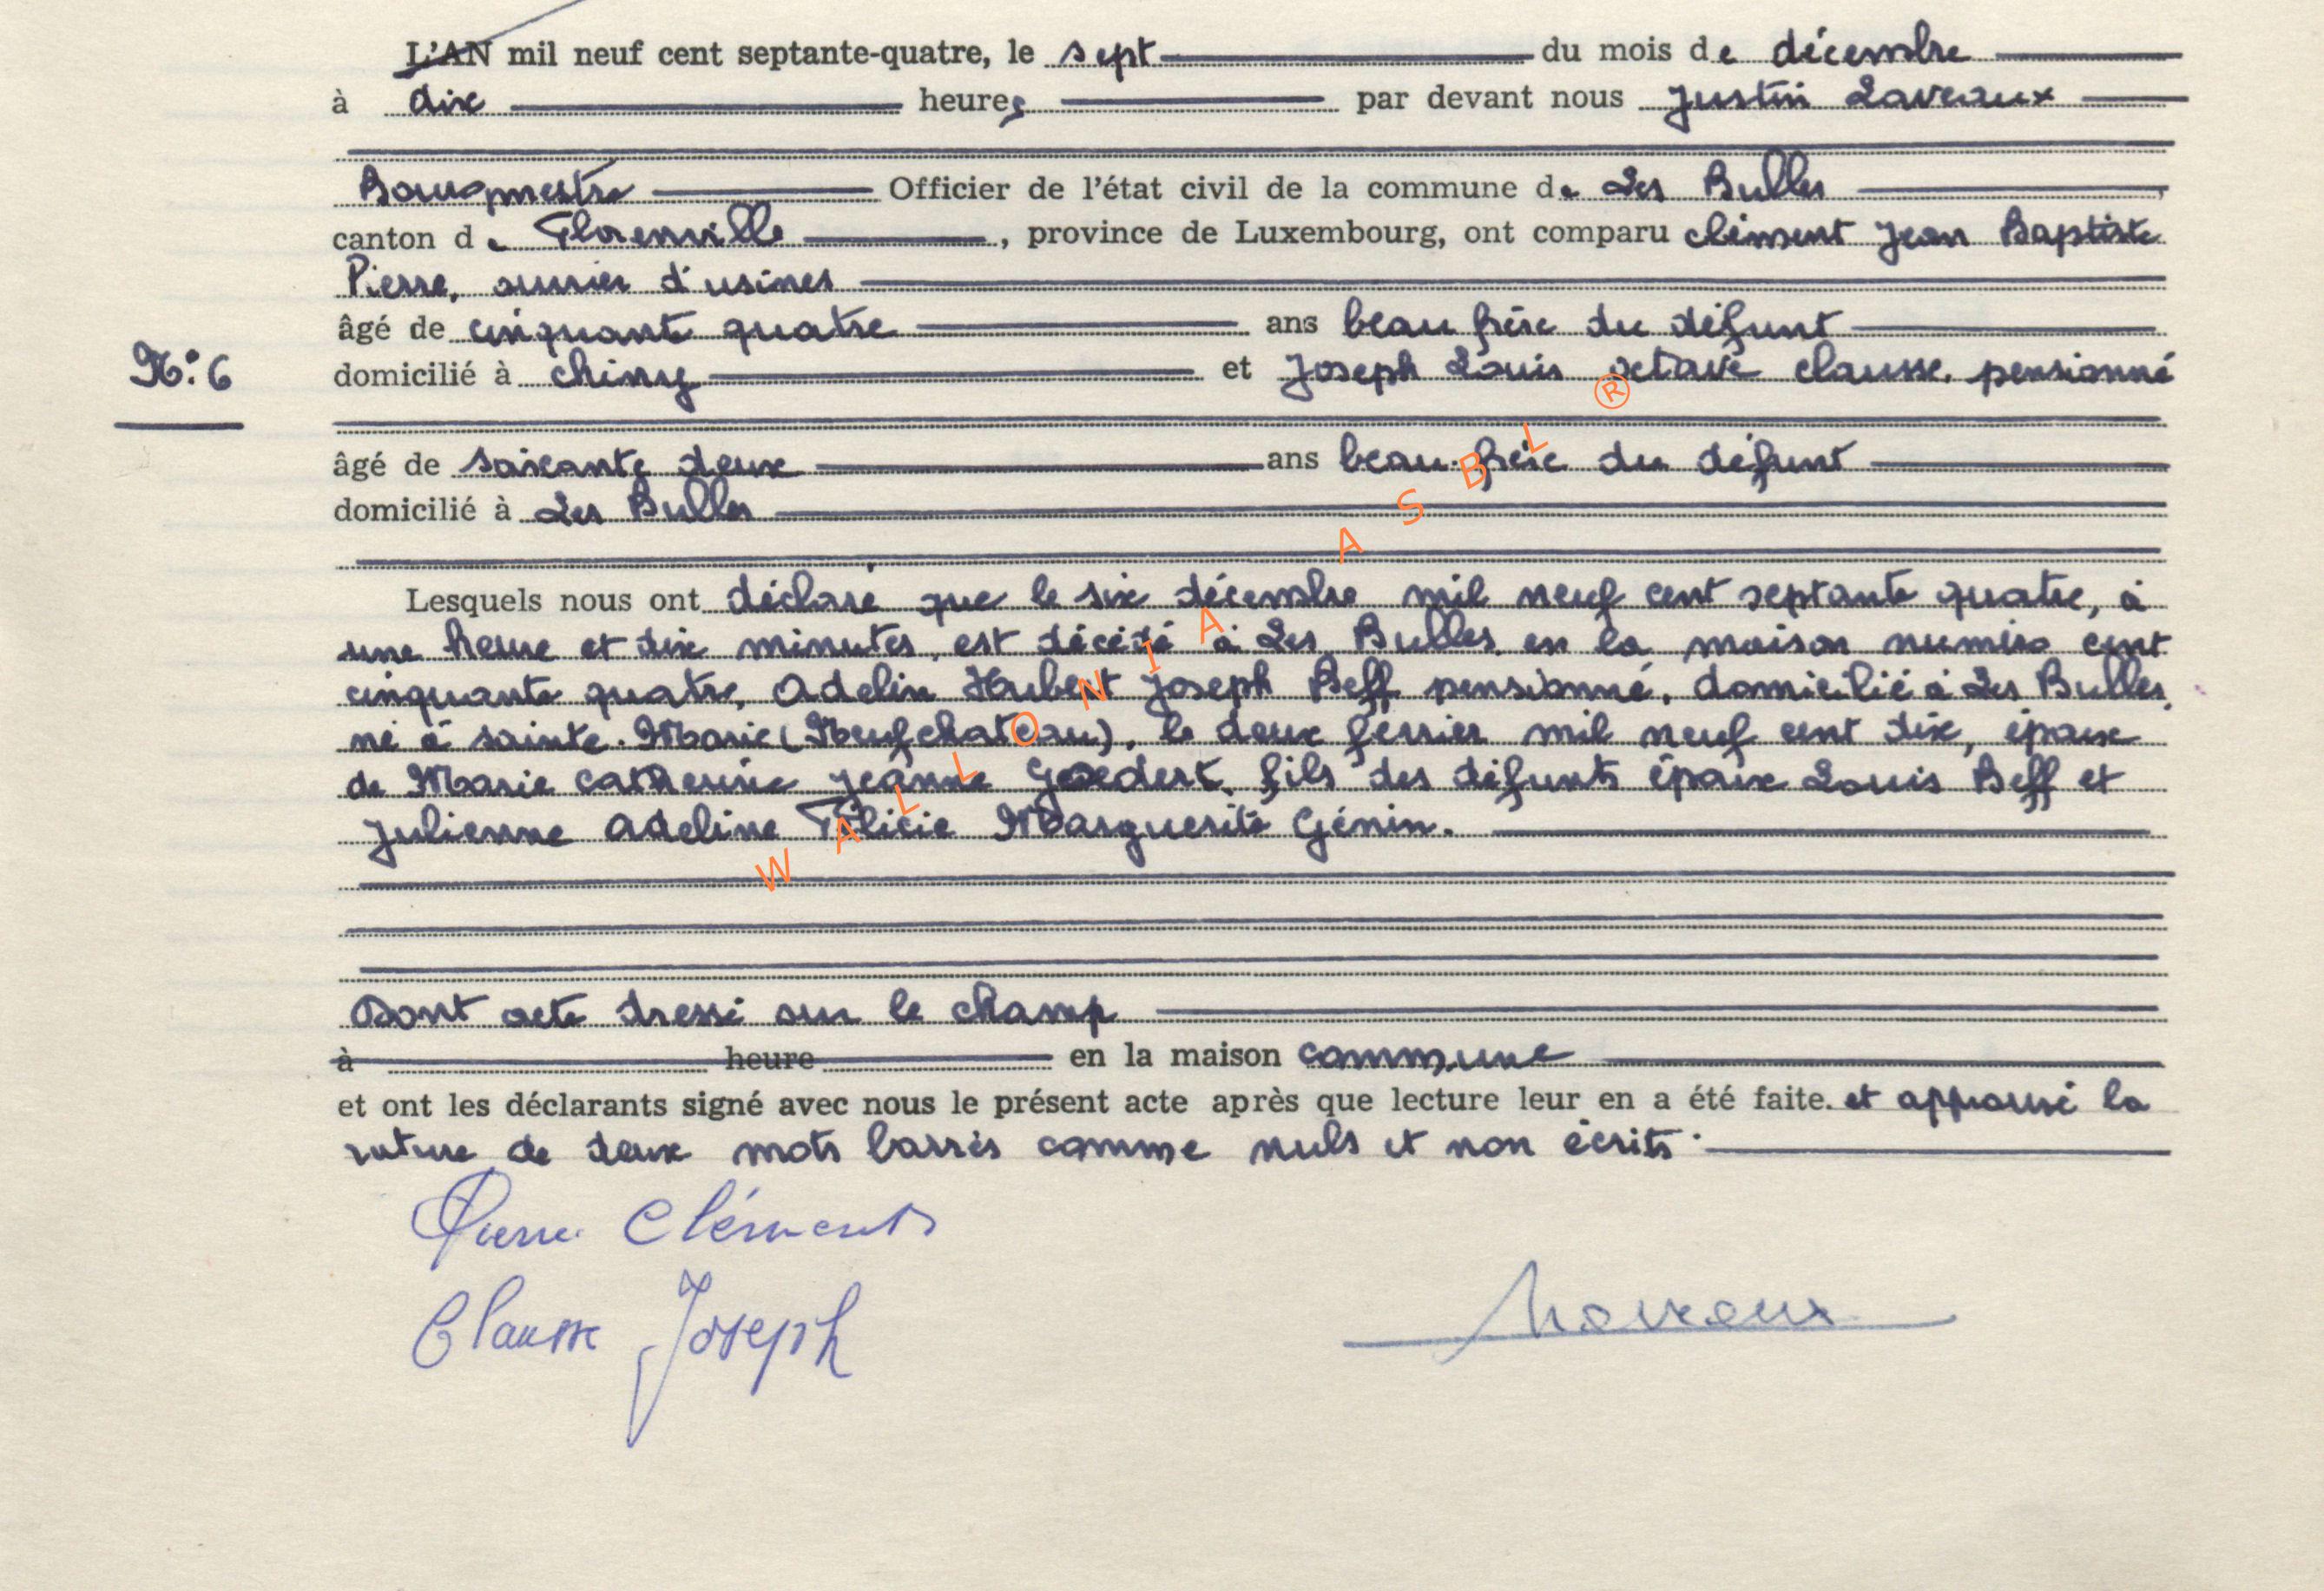 L'AN mil neuf cent septante-quatre, le sept du mois de décembre
à dix heures par devant nous Justin Laveaux
Bourgmestre Officier de l'état civil de la commune de Les Bulles,
canton de Florenville, province de Luxembourg, ont comparu Clément Jean Baptiste
Pierre, ouvrier d'usines
âgé de cinquante quatre ans beau frère du défunt
N° 6
domicilié à Chiny et Joseph Louis Octave Clausse, pensionné
âgé de soixante deux ans beau-frère du défunt
domicilié à Les Bulles
Lesquels nous ont déclaré que le six décembre mil neuf cent septante quatre, à
une heure et dix minutes, est décédé à Les Bulles, en la maison numéro cent
cinquante quatre, Adelin Hubert Joseph Beff pensionné, domicilié à Les Bulles,
né à Sainte-Marie (Neufchateau), le deux février mil neuf cent dix, époux
de Marie Catherine Jeanne Goedert, fils des défunts époux Louis Beff et
Julienne Adeline Félicie Marguerite Génin.
Dont acte dressé sur le champ
à heure en la maison communne
et ont les déclarants signé avec nous le présent acte après que lecture leur en a été faite. et approuvé la
rature de deux mots barrés comme nuls et non écrits.
Pierre Clément
Clausse Joseph
Laveaux
WALLONIA ASBL ®